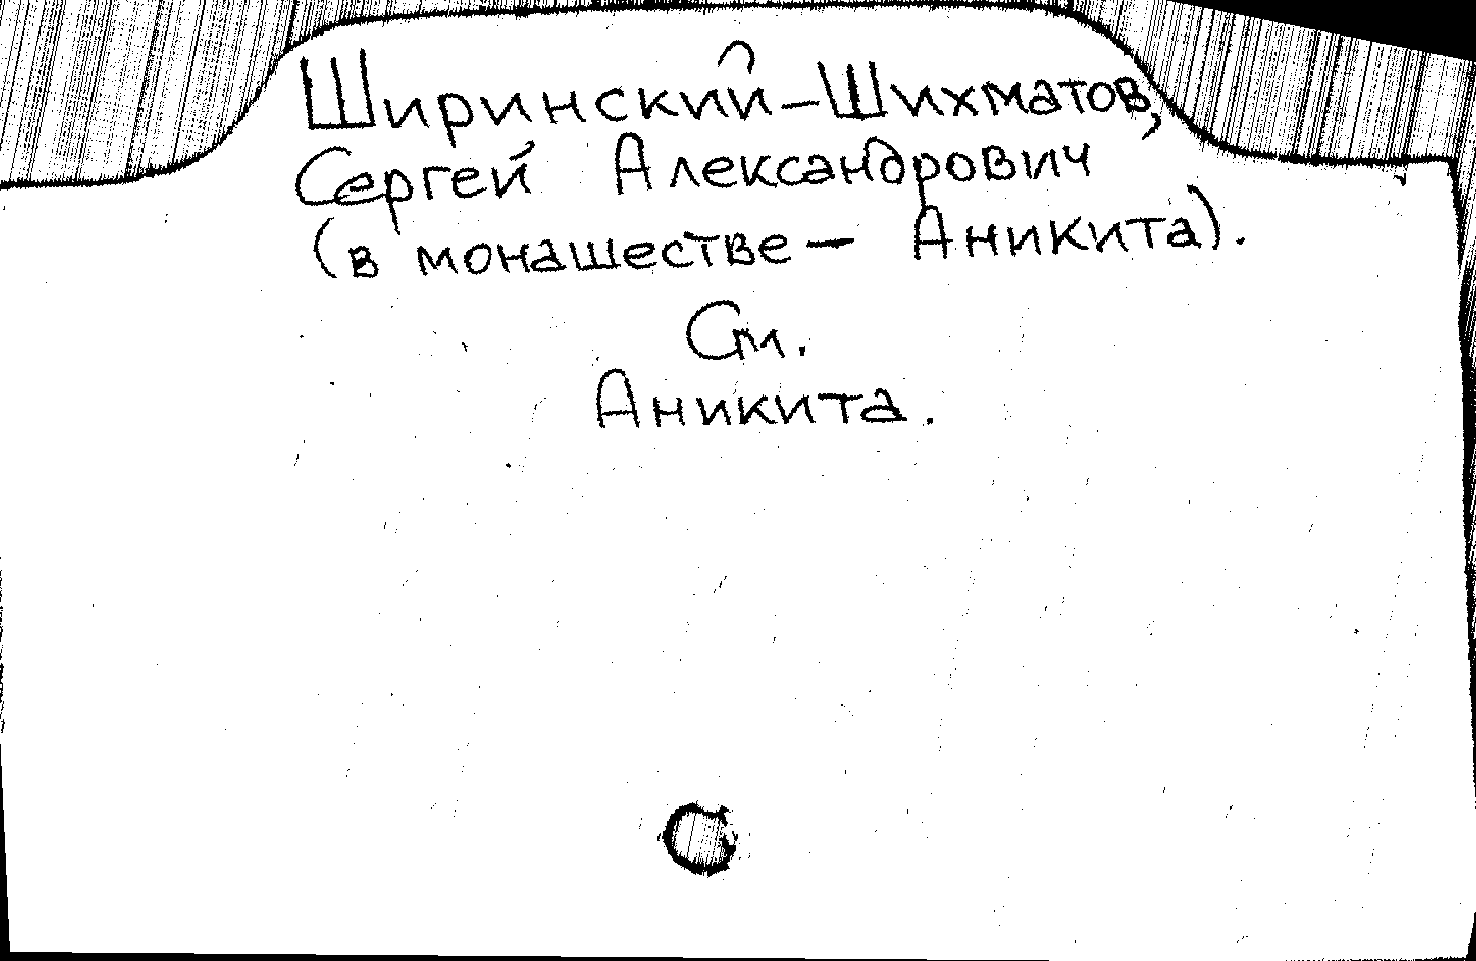 Ширинский-Шихматов,
Сергей Александрович
(в монашестве - Аникита).
См.
Аникита.